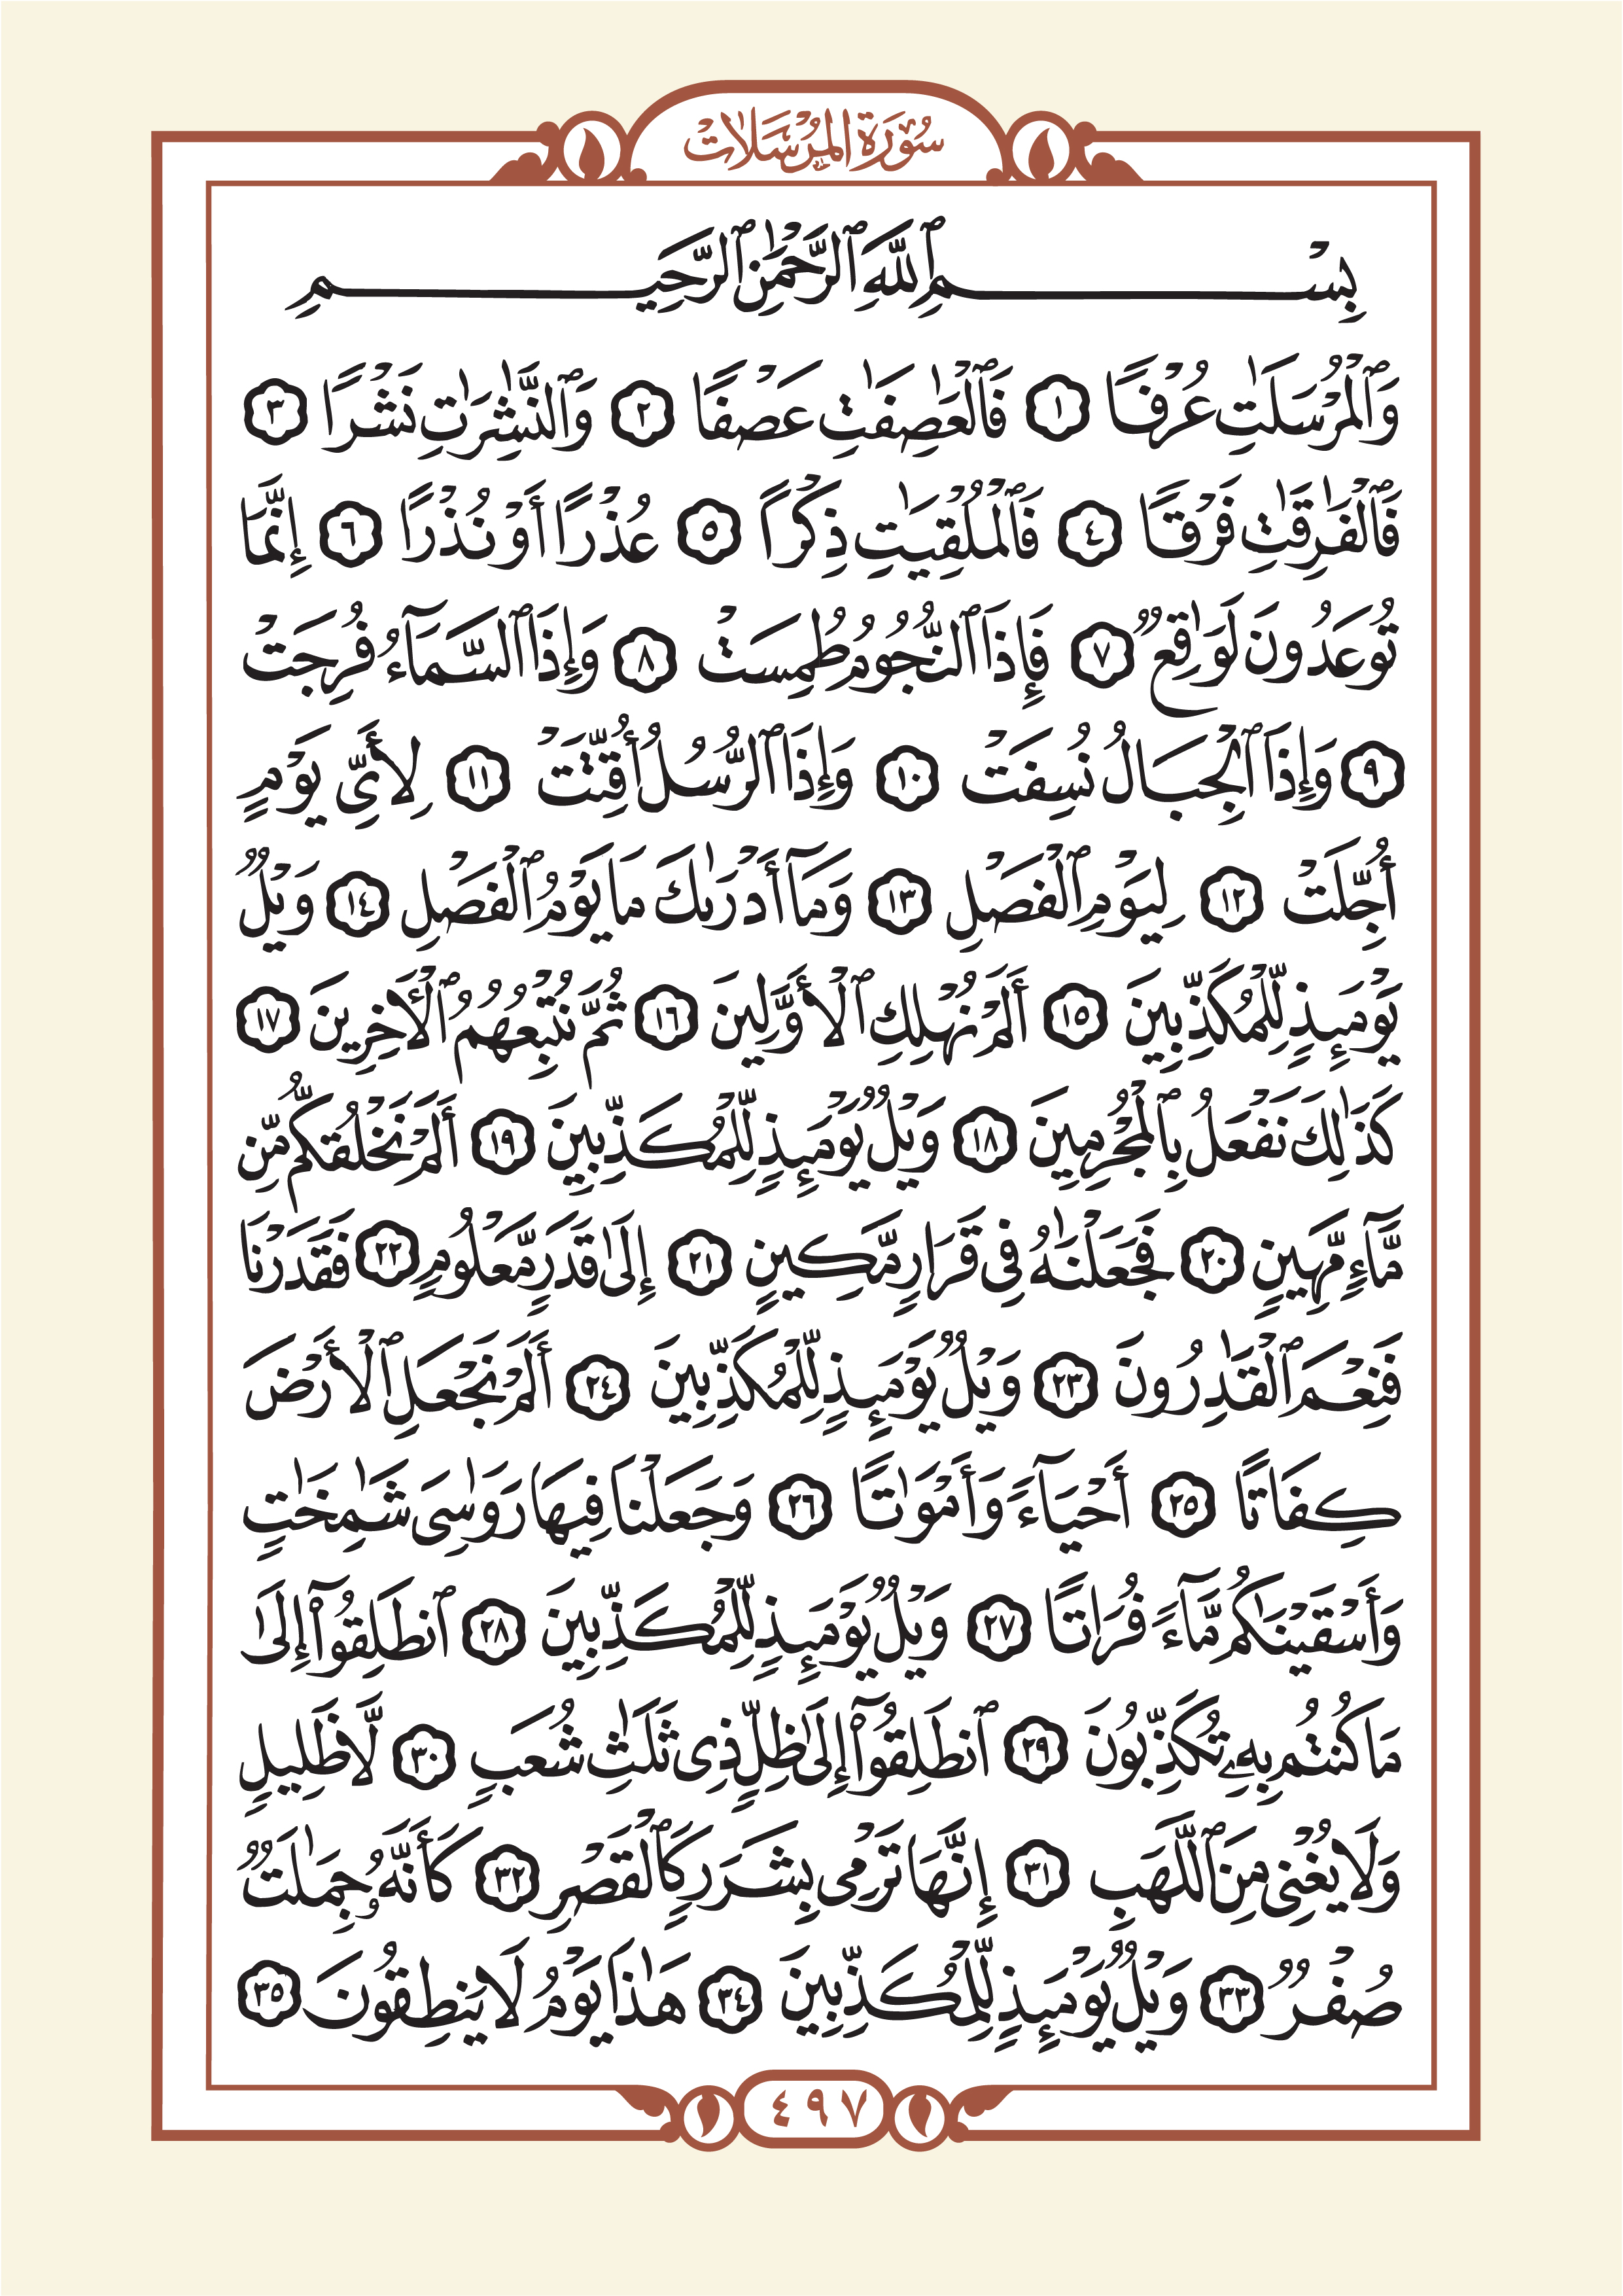 سُورَةُ المُرْسَلَات
بِسْمِ ٱللَّهِ ٱلرَّحْمَٰنِ ٱلرَّحِيمِ
وَٱلْمُرْسَلَٰتِ عُرْفًا ١ فَٱلْعَٰصِفَٰتِ عَصْفًا ٢ وَٱلنَّٰشِرَٰتِ نَشْرًا ٣
فَٱلْفَٰرِقَٰتِ فَرْقًا ٤ فَٱلْمُلْقِيَٰتِ ذِكْرًا ٥ عُذْرًا أَوْ نُذْرًا ٦ إِنَّمَا
تُوعَدُونَ لَوَٰقِعٌ ٧ فَإِذَا ٱلنُّجُومُ طُمِسَتْ ٨ وَإِذَا ٱلسَّمَآءُ فُرِجَتْ
٩ وَإِذَا ٱلْجِبَالُ نُسِفَتْ ١٠ وَإِذَا ٱلرُّسُلُ أُقِّتَتْ ١١ لِأَيِّ يَوْمٍ
أُجِّلَتْ ١٢ لِيَوْمِ ٱلْفَصْلِ ١٣ وَمَآ أَدْرَىٰكَ مَا يَوْمُ ٱلْفَصْلِ ١٤ وَيْلٌ
يَوْمَئِذٍ لِّلْمُكَذِّبِينَ ١٥ أَلَمْ نُهْلِكِ ٱلْأَوَّلِينَ ١٦ ثُمَّ نُتْبِعُهُمُ ٱلْأَخِرِينَ ١٧
كَذَٰلِكَ نَفْعَلُ بِٱلْمُجْرِمِينَ ١٨ وَيْلٌ يَوْمَئِذٍ لِّلْمُكَذِّبِينَ ١٩ أَلَمْ نَخْلُقكُّم مِّن
مَّآءٍ مَّهِينٍ ٢٠ فَجَعَلْنَٰهُ فِى قَرَارٍ مَّكِينٍ ٢١ إِلَىٰ قَدَرٍ مَّعْلُومٍ ٢٢ فَقَدَرْنَا
فَنِعْمَ ٱلْقَٰدِرُونَ ٢٣ وَيْلٌ يَوْمَئِذٍ لِّلْمُكَذِّبِينَ ٢٤ أَلَمْ نَجْعَلِ ٱلْأَرْضَ
كِفَاتًا ٢٥ أَحْيَآءً وَأَمْوَٰتًا ٢٦ وَجَعَلْنَا فِيهَا رَوَٰسِىَ شَٰمِخَٰتٍ
وَأَسْقَيْنَٰكُم مَّآءً فُرَاتًا ٢٧ وَيْلٌ يَوْمَئِذٍ لِّلْمُكَذِّبِينَ ٢٨ ٱنطَلِقُوٓا۟ إِلَىٰ
مَا كُنتُم بِهِۦ تُكَذِّبُونَ ٢٩ ٱنطَلِقُوٓا۟ إِلَىٰ ظِلٍّ ذِى ثَلَٰثِ شُعَبٍ ٣٠ لَّا ظَلِيلٍ
وَلَا يُغْنِى مِنَ ٱللَّهَبِ ٣١ إِنَّهَا تَرْمِى بِشَرَرٍ كَٱلْقَصْرِ ٣٢ كَأَنَّهُۥ جِمَٰلَتٌ
صُفْرٌ ٣٣ وَيْلٌ يَوْمَئِذٍ لِّلْمُكَذِّبِينَ ٣٤ هَٰذَا يَوْمُ لَا يَنطِقُونَ ٣٥
٤٩٧